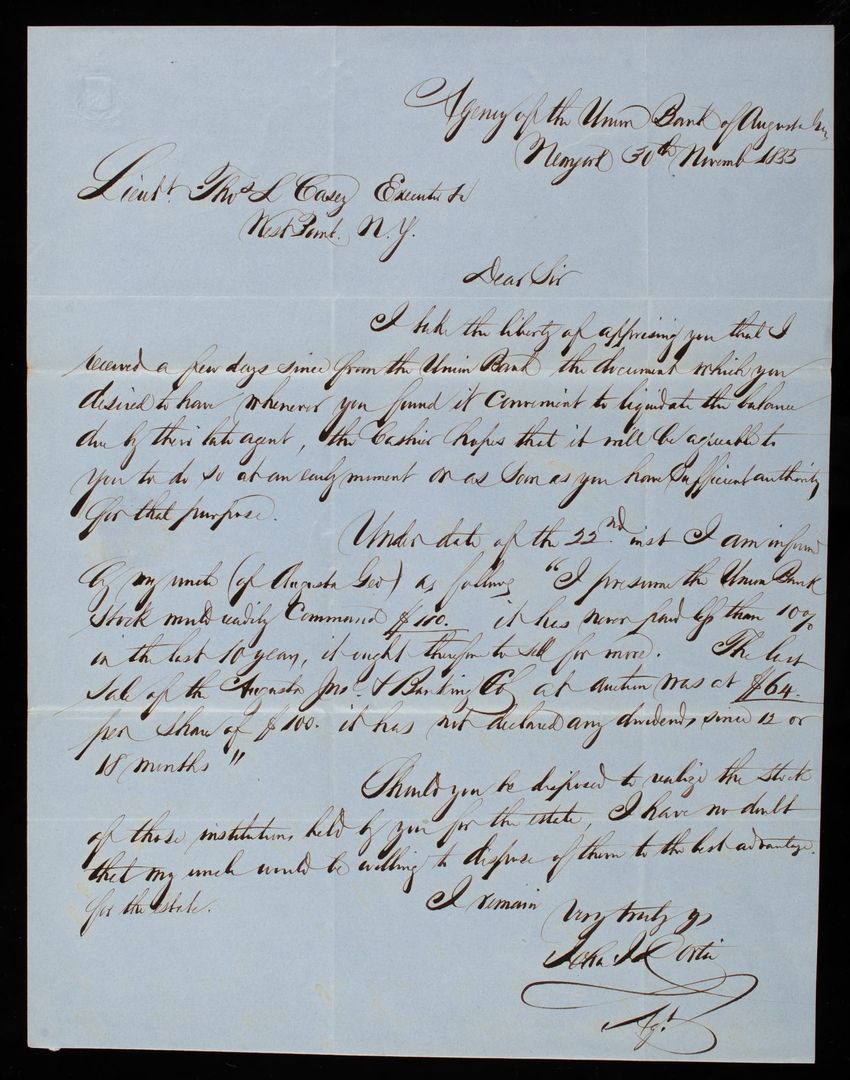 Agency of the Union Bank of Augusta Geo
Newyork 30th Novemb 1855
Lieut. Thos L Casey Executor &c
West Point. N.Y.
Dear Sir
I take the liberty of apprising you that I
received a few days since from the Union Bank the document which you
desired to have whenever you found it convenient to liquidate the balance
due by their late agent, the Cashier hopes that it will be agreeable to
you to do so at an early moment or as soon as you have sufficient authority
for that purpose.
Under date of the 22nd inst I am informd
by my uncle (of Augusta Geo) as follows "I presume the Union Bank
Stock would readily Command $110. it has never paid less than 10%
in the last 10 years, it ought therefore to sell for more. The last
Sale of the Augusta Ins. & Banking Co at auction was at $64.
per share of $100. it has not declared any dividends since 12 or
18 months"
Should you be disposed to realize the stock
of those institutions held by you for the estate, I have no doubt
that my uncle would be willing to dispose of them to the best advantage
for the estate.
I remain
Very truly ys
John J
Agt